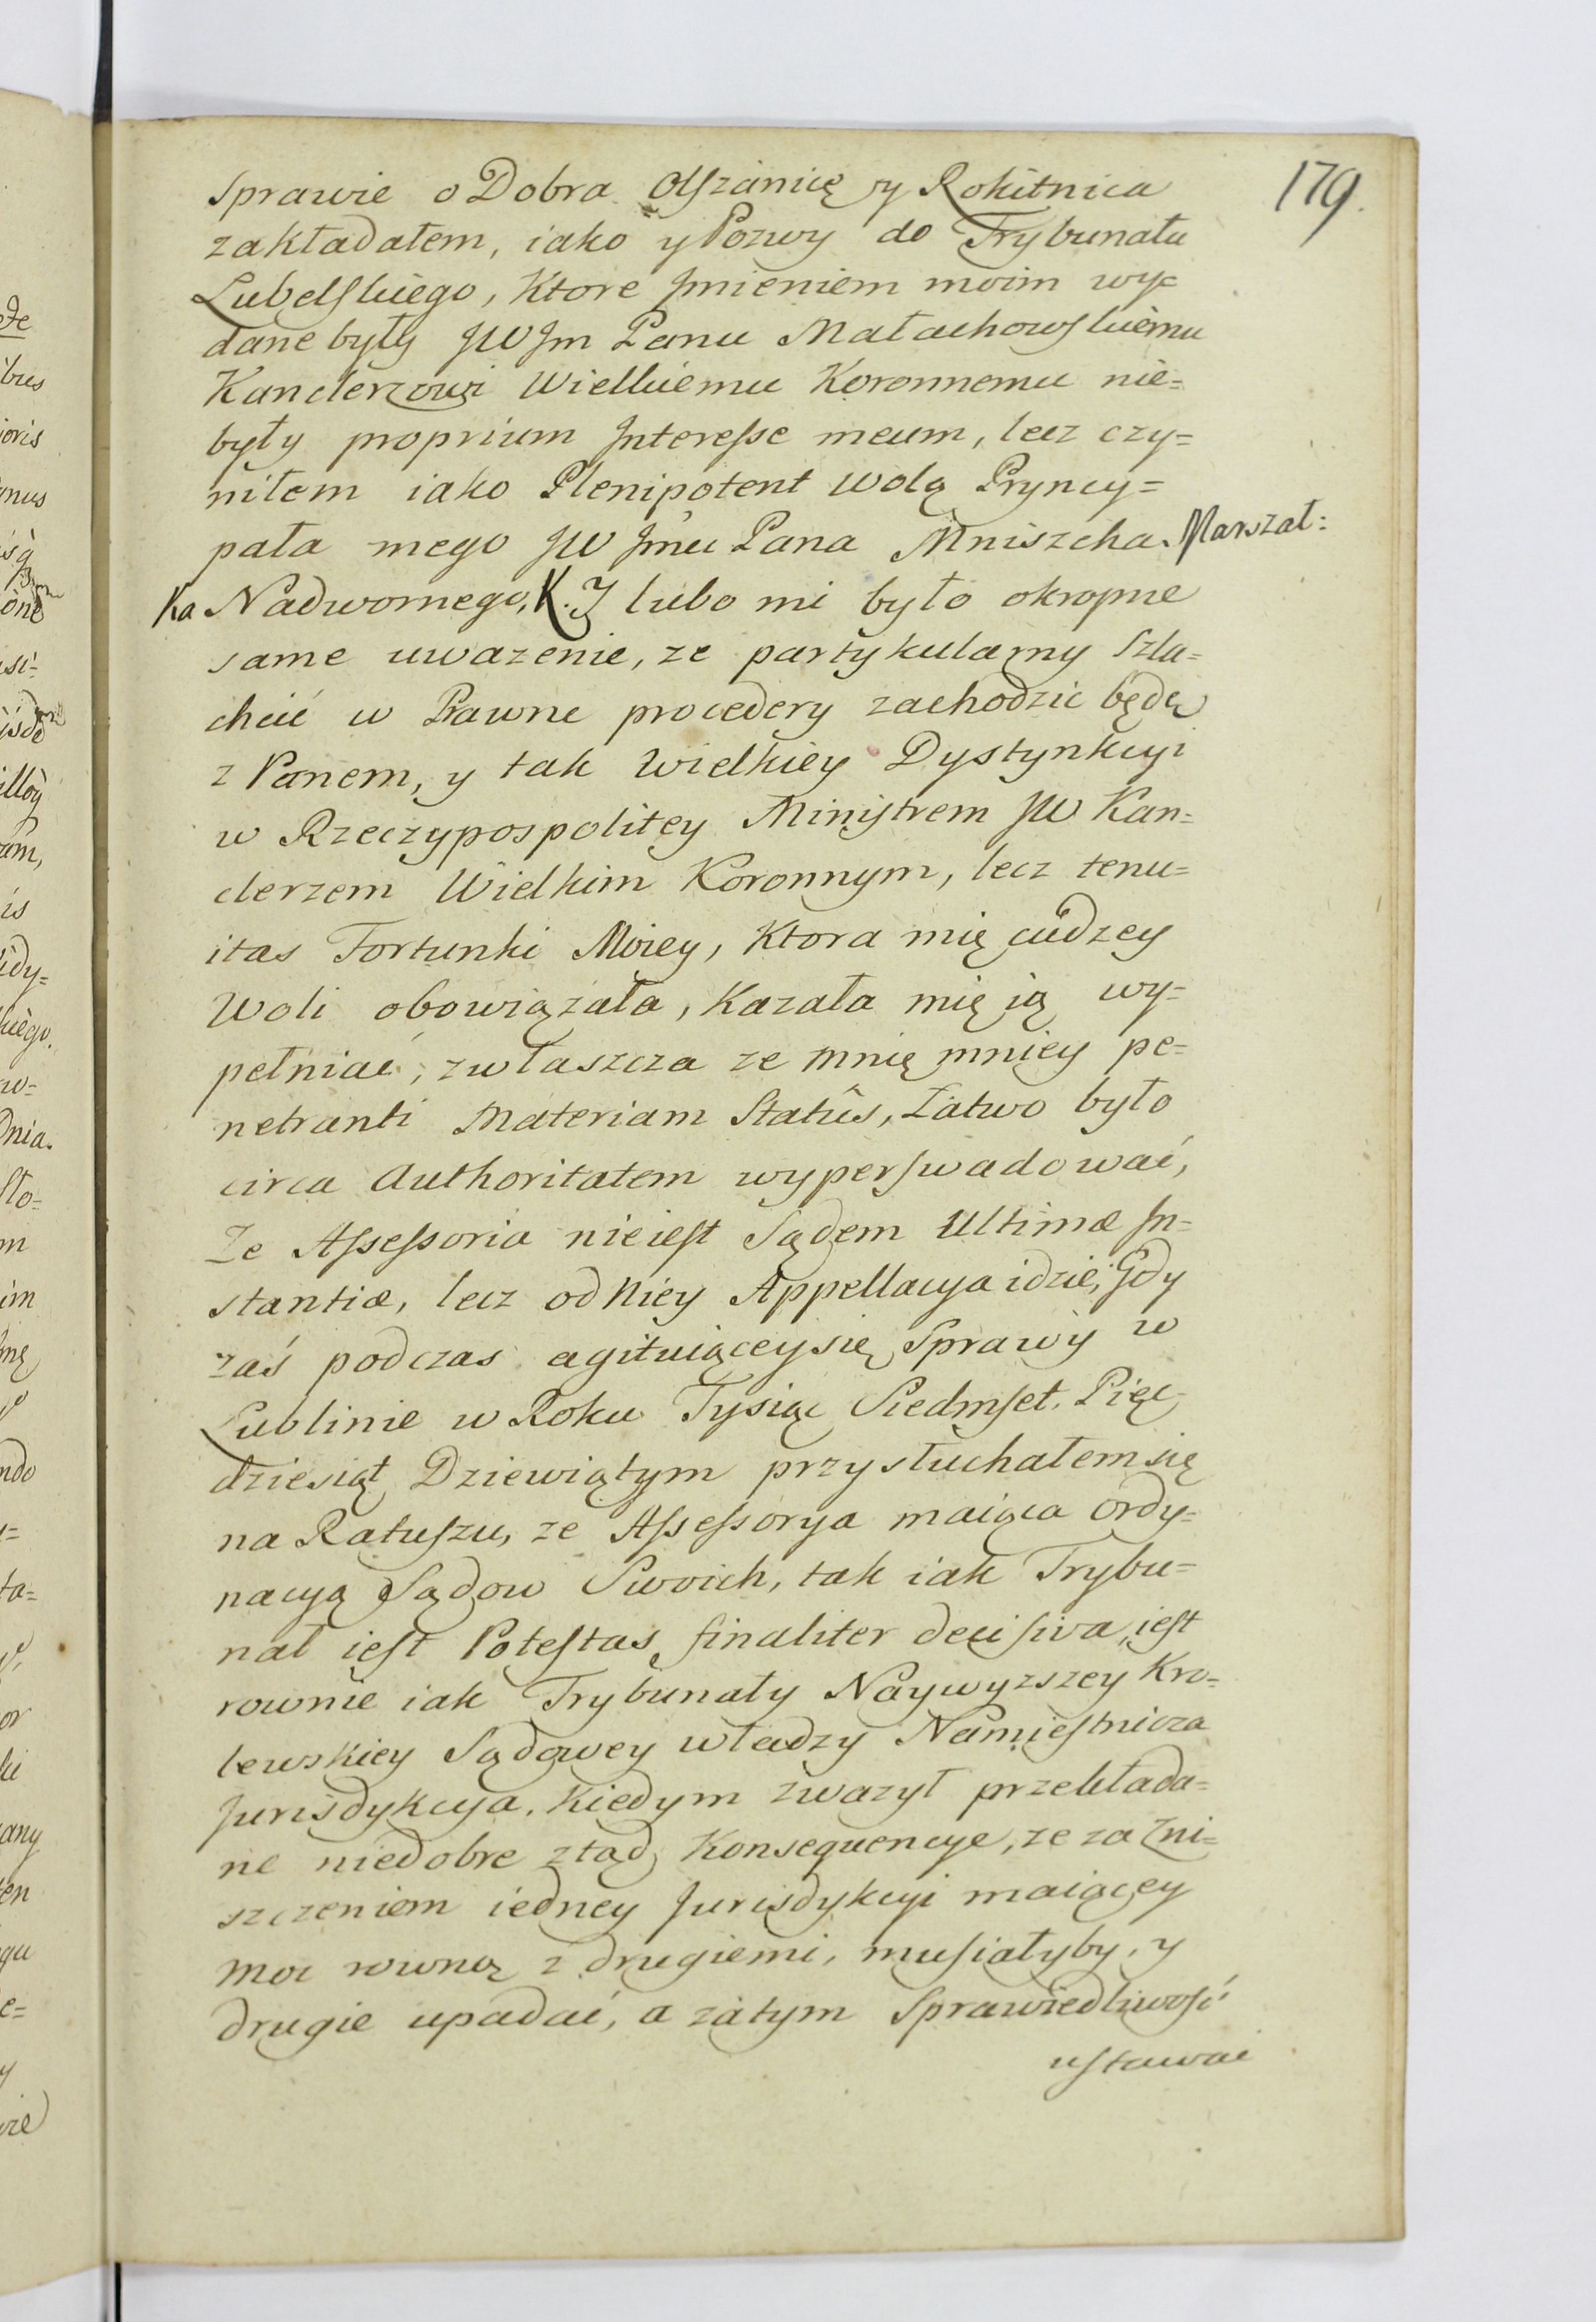 179.
sprawie o Dobra Olszanicę y Rokitnica
zakładałem, iako y Pozwy do Trybunału
Lubelskiego, Ktore Jmieniem moim wy=
dane były JW Jm Panu Małachowskiemu
Kanclerzowi Wielkiemu Koronnemu nie=
były proprium Jnteresse meum, lecz czy=
niłem iako Plenipotent wolą Pryncy=
pała mego JW Jmci Pana Mniszcha Marszał=
ka Nadwornego, K. J lubo mi było okropne
same uwazenie, ze partykularny Szla=
chcić w Prawne procedery zachodzic będę
z Panem, y tak wielkiey Dystynkcyi
w Rzeczypospolitey Ministrem JW Kan=
clerzem Wielkim Koronnym, lecz tenu=
itas Fortunki Moiey, Ktora mię cudzey
Woli obowiązała, Kazała mię ią wy=
pełniać, zwłaszcza ze mnię mniey pe=
netranti Materiam Statûs, Łatwo było
circa Authoritatem wyperswadować,
Ze Assessoria nieiest Sądem Ultimæ Jn=
stantiæ, lecz od Niey Appellacya idzie, Gdy
zaś podczas agituiąceysię Sprawy w
Lublinie w Roku Tysiąc Siedmset Pięc=
dziesiąt Dziewiątym przysłuchałem się
na Ratuszu, ze Assessorya maiąca ordy=
nacyą Sądow Swoich, tak iak Trybu=
nał iest Potestas finaliter decisiva, iest
rownie iak Trybunały Naywyzszey Kro=
lewskiey Sądowey władzy Namiestnicza
Jurisdykcya, Kiedym zwazył przekłada=
ne niedobre ztąd Konsequencye, ze za Zni=
szczeniem iedney Jurisdykcyi maiącey
Moc rowną z drugiemi, musiałyby, y
drugie upadać, a zatym Sprawiedliwość
ustawać